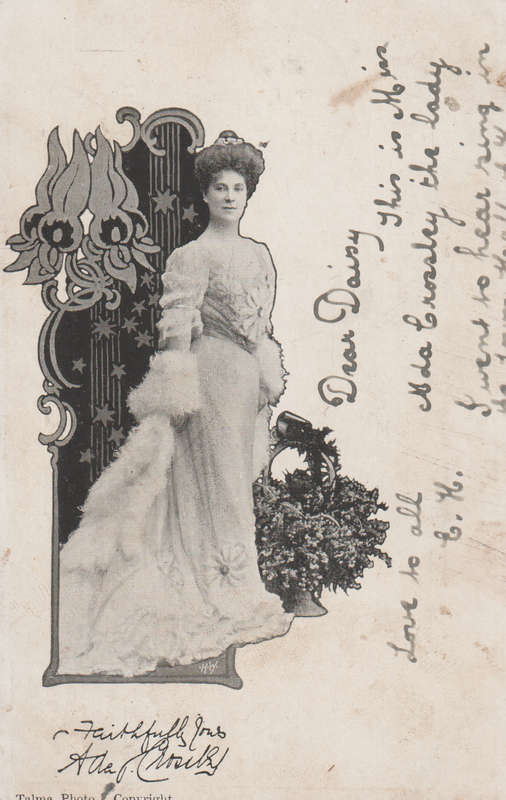 Dear Daisy
This is Miss
Ada Crossley the lady
I went to hear sing in
the Town Hall
Love to all
E. H.
Faithfully Yours
Ada Crossley
Talma Photo Copyright